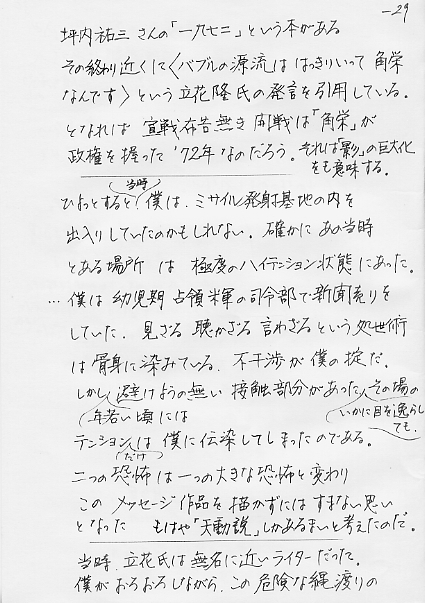 －29
坪内祐三さんの「一九七二」という本がある
その終わり近くに〈バブルの源流は はっきりいって 角栄
なんです〉という立花隆氏の発言を引用している.
となれば 宣戦布告無き 開戦は「角栄」が
政権を握った '72年なのだろう. それは「影」の巨大化
をも意味する.
当時
ひょっとすると 僕は、ミサイル発射基地の内を
出入りしていたのかもしれない. 確かに あの当時
とある場所 は 極度のハイテンション状態にあった.
… 僕は 幼児期 占領米軍の司令部で新聞売りを
していた. 見ざる 聴かざる 言わざるという処世術
は 骨身に染みている. 不干渉が僕の掟だ.
しかし 避けようの無い 接触部分があった. その場の
年若い頃には
いかに目を逸らし
ても.
テンションは 僕に伝染してしまったのである.
だけ
二つの恐怖は一つの大きな恐怖と変わり
この メッセージ作品を描かずには すまない思い
となった もはや「天動説」しかあるまいと考えたのだ.
当時. 立花氏は無名に近いライターだった.
僕がおろおろしながら、この 危険な綱渡りの